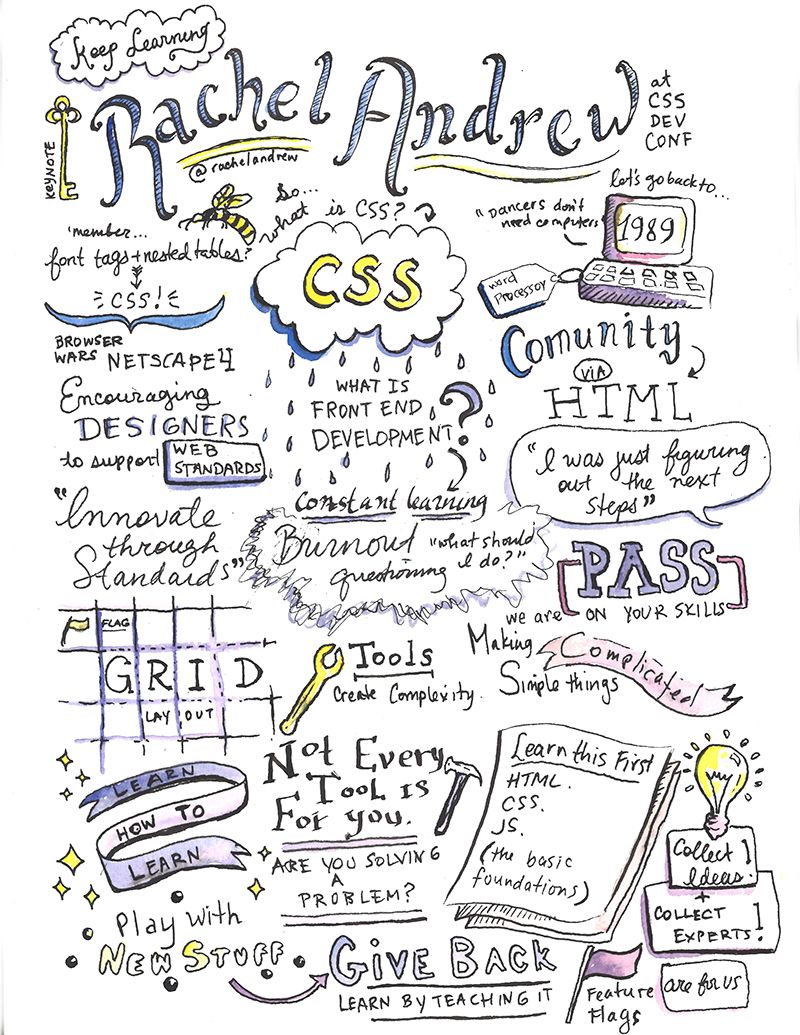 Keep Learning
KEYNOTE
Rachel Andrew
@rachelandrew
at
CSS
DEV
CONF
'member...
font tags + nested tables?
CSS!
So...
what is CSS?
CSS
let's go back to...
"Dancers don't
need computers"
1989
Word
Processor
BROWSER
WARS NETSCAPE 4
Encouraging
DESIGNERS
to support WEB
STANDARDS
"Innovate
through
Standards"
WHAT IS
FRONT END
DEVELOPMENT?
Constant learning
Burnout "what should
questioning I do?"
Comunity
VIA
HTML
"I was just figuring
out the next
steps"
PASS
ON YOUR SKILLS
we are
Making Complicated
Simple things
FLAG
GRID
LAY OUT
Tools
Create Complexity.
LEARN
HOW TO
LEARN
Not Every
Tool is
For you.
ARE YOU SOLVING
A
PROBLEM?
Learn this First
HTML.
CSS.
JS.
(the basic
foundations)
Collect
Ideas!
+
COLLECT
EXPERTS!
Play with
NEW STUFF
GIVE BACK
LEARN BY TEACHING IT
Feature
Flags
are for us